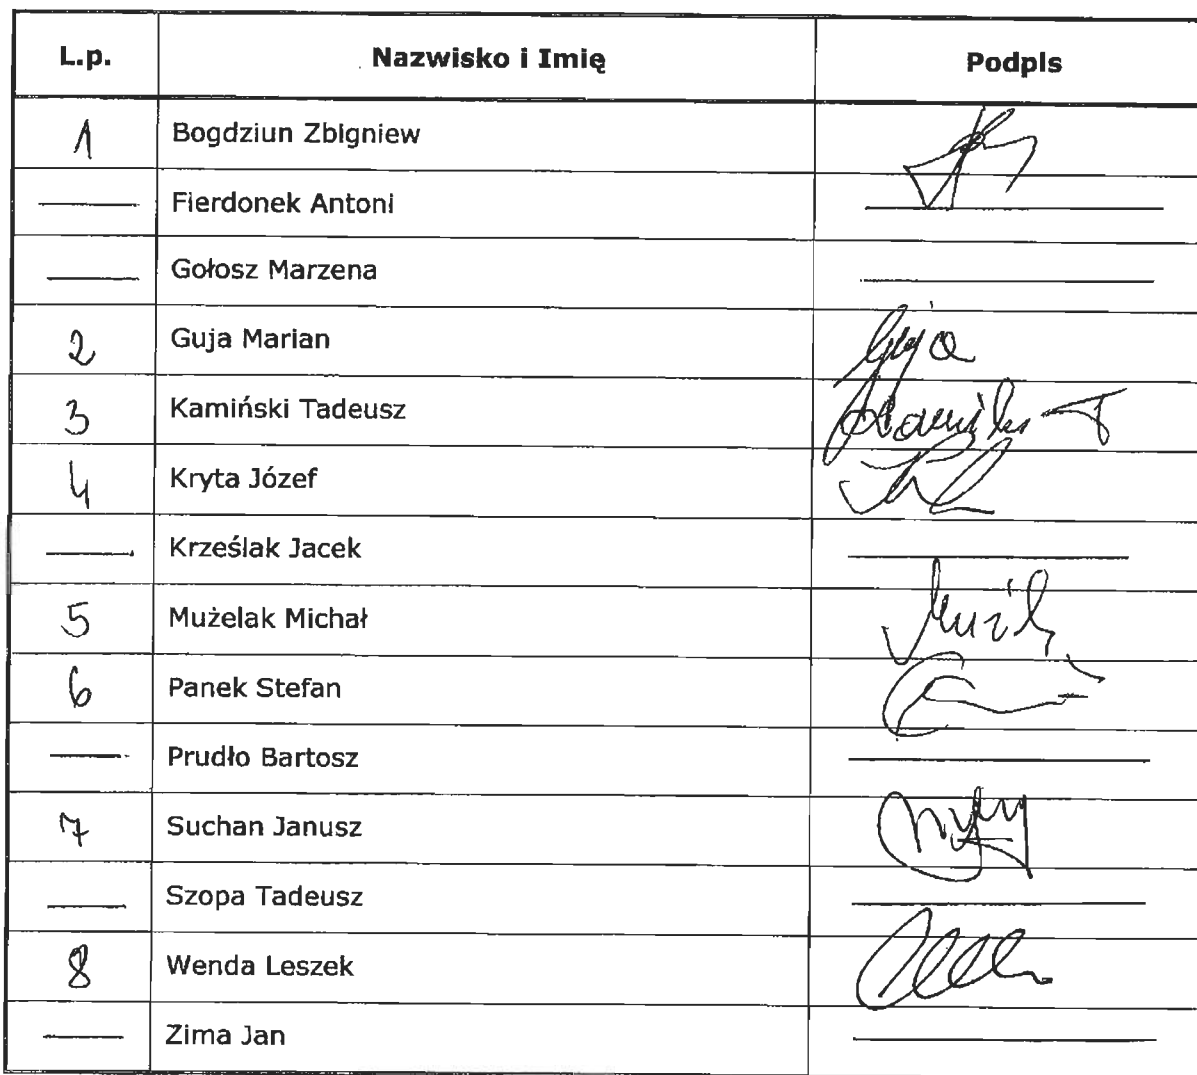 L.p. Nazwisko i Imię Podpis
1 Bogdziun Zbigniew
Fierdonek Antoni
Gołosz Marzena
2 Guja Marian Guja
3 Kamiński Tadeusz
4 Kryta Józef
Krześlak Jacek
5 Mużelak Michał
6 Panek Stefan
Prudło Bartosz
7 Suchan Janusz
Szopa Tadeusz
8 Wenda Leszek
Zima Jan